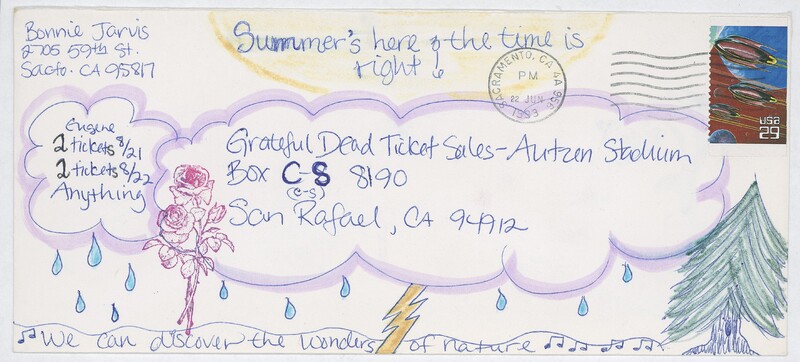 Bonnie Jarvis
2705 59th St.
Sacto. CA 95817
Summer's here & the time is
right
SACRAMENTO, CA 4A 958
PM
22 JUN
1993
USA
29
Eugene
2 tickets 8/21
2 tickets 8/22
Anything
Grateful Dead Ticket Sales - Autzen Stadium
Box C-S 8190
(C-S)
San Rafael, CA 94912
We can discover the wonders of nature